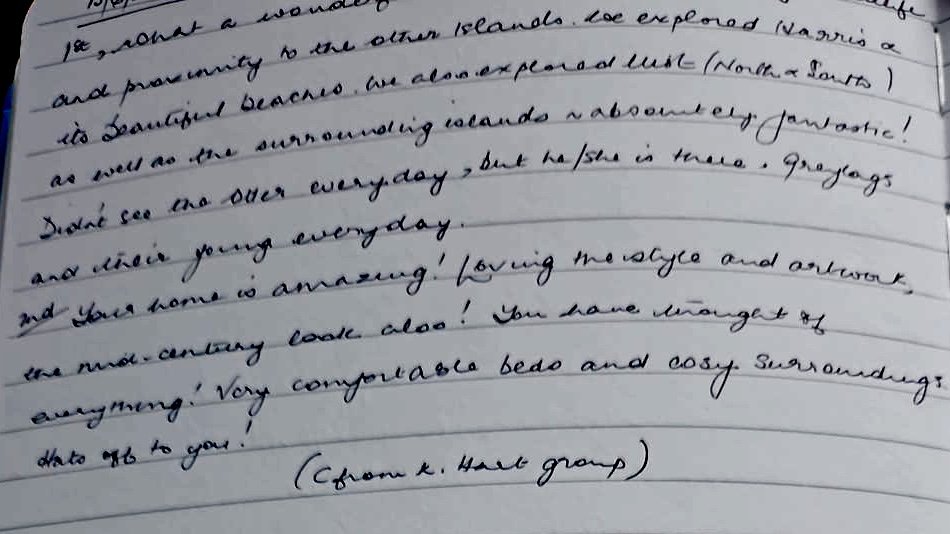 1st, what a wonderf
and proximity to the other Islands. We explored Harris &
its beautiful beaches. We also explored Uist (North & South)
as well as the surrounding islands ~ absolutely fantastic!
Didn't see the Otter everyday, but he/she is there. Greylags
and their young everyday.
2nd Your home is amazing! Loving the style and artwork,
the mid-century look also! You have thought of
everything! Very comfortable beds and cosy surroundings
Hats off to you!
(C from K. Hart group)